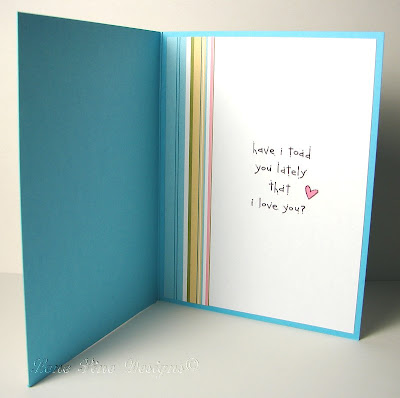 have i toad
you lately
that
i love you?
Lone Pine Designs©